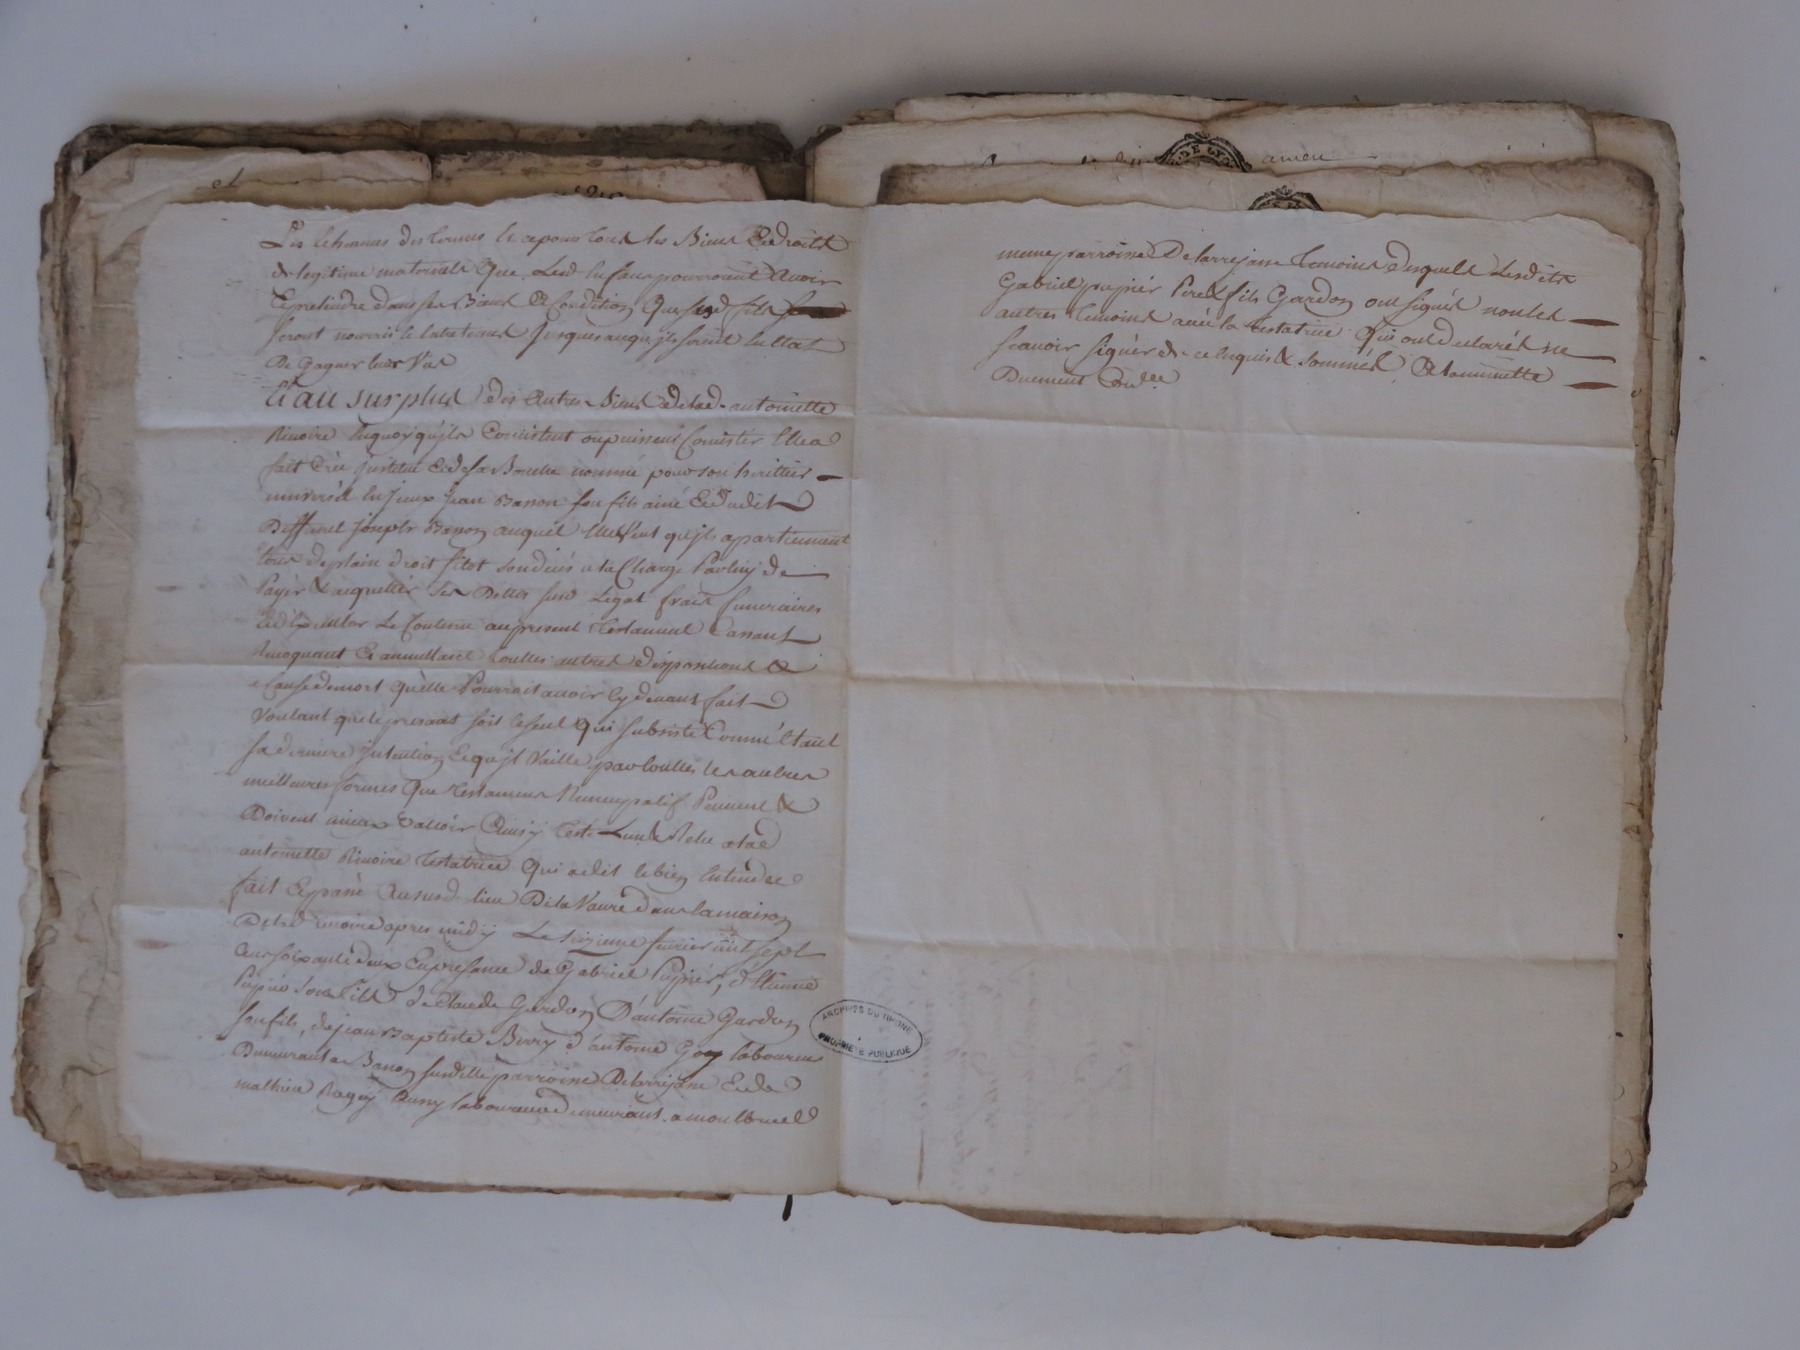 et
amen
DE LYO
Les echeances des termes et ce pour tous les Biens Et droits
de legitime maternels Que Lesd Enfans pourroient Avoir
Et pretendre dans ses Biens A Condition Que sesd fils
seront nourris et Entretenus Jusques a ce qu'ils soient En Etat
De Gagner leur Vie
Et au surplus des Autres Biens de lad. antoinette
Rivoire En quoy qu'ils Consistent ou puissent Consister Elle a
fait Créé Institué Et de sa Bouche nommé pour son heritier
universel Jean Banon son fils ainé Et dudit
Deffunt Joseph Banon auquel Elle Veut qu'ils apartiennent
tous de plain droit sitot son decés a la Charge Par luy de
Payer & acquitter ses Dettes susd Legat frais funeraires
Et d'Executer Le Contenu au present Testament Cassant
Revoquant Et annullant touttes autres dispositions &
a Cause de mort qu'elle Pourroit avoir Cy devant fait
Voulant que le present soit le seul Qui subsiste Comme Etant
sa derniere Intention Et qu'il Vaille par touttes les autres
meilleures formes Que testament Nuncupatif Peuvent &
Doivent mieux Valloir Ainsy Testé Lu & Relu a lad
antoinette Rivoire Testatrice Qui a dit le bien Entendre
fait Et passé Au susd. lieu De la Vaure dans la maison
De lad rivoire apres midy Le seizieme fevrier mil sept
Cent soixante deux En presence de Gabriel Pupier, d'Etienne
Pupier son fils de Claude Gardon D'antoine Gardon
son fils, de jean Baptiste Berry d'antoine Goy laboureurs
Demeurants a Banon susditte parroisse De larrajasse Et de
mathieu Ragey laboureur demeurant a
ARCHIVES DU RHONE
PROPRIETE PUBLIQUE
meme parroisse De larrajasse temoins desquels Lesdits
Gabriel pupier Pere & fils Gardon ont signés non les
autres temoins avec la testatrice Qui ont declarés ne
scavoir signer de ce Enquis & sommés A la minutte
Duement